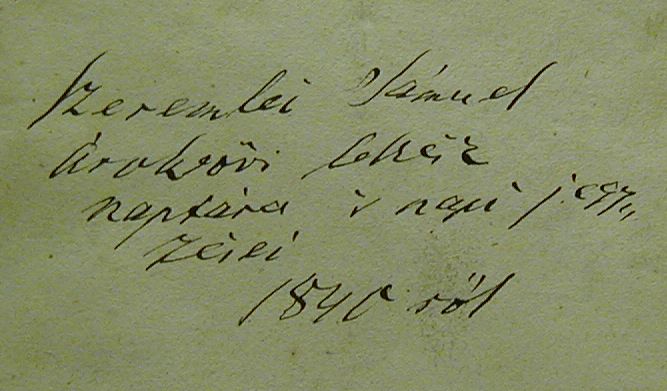 Szeremlei Sámuel
árokszövi lelkész
naptára s napi jegy„
zései
1840 ről